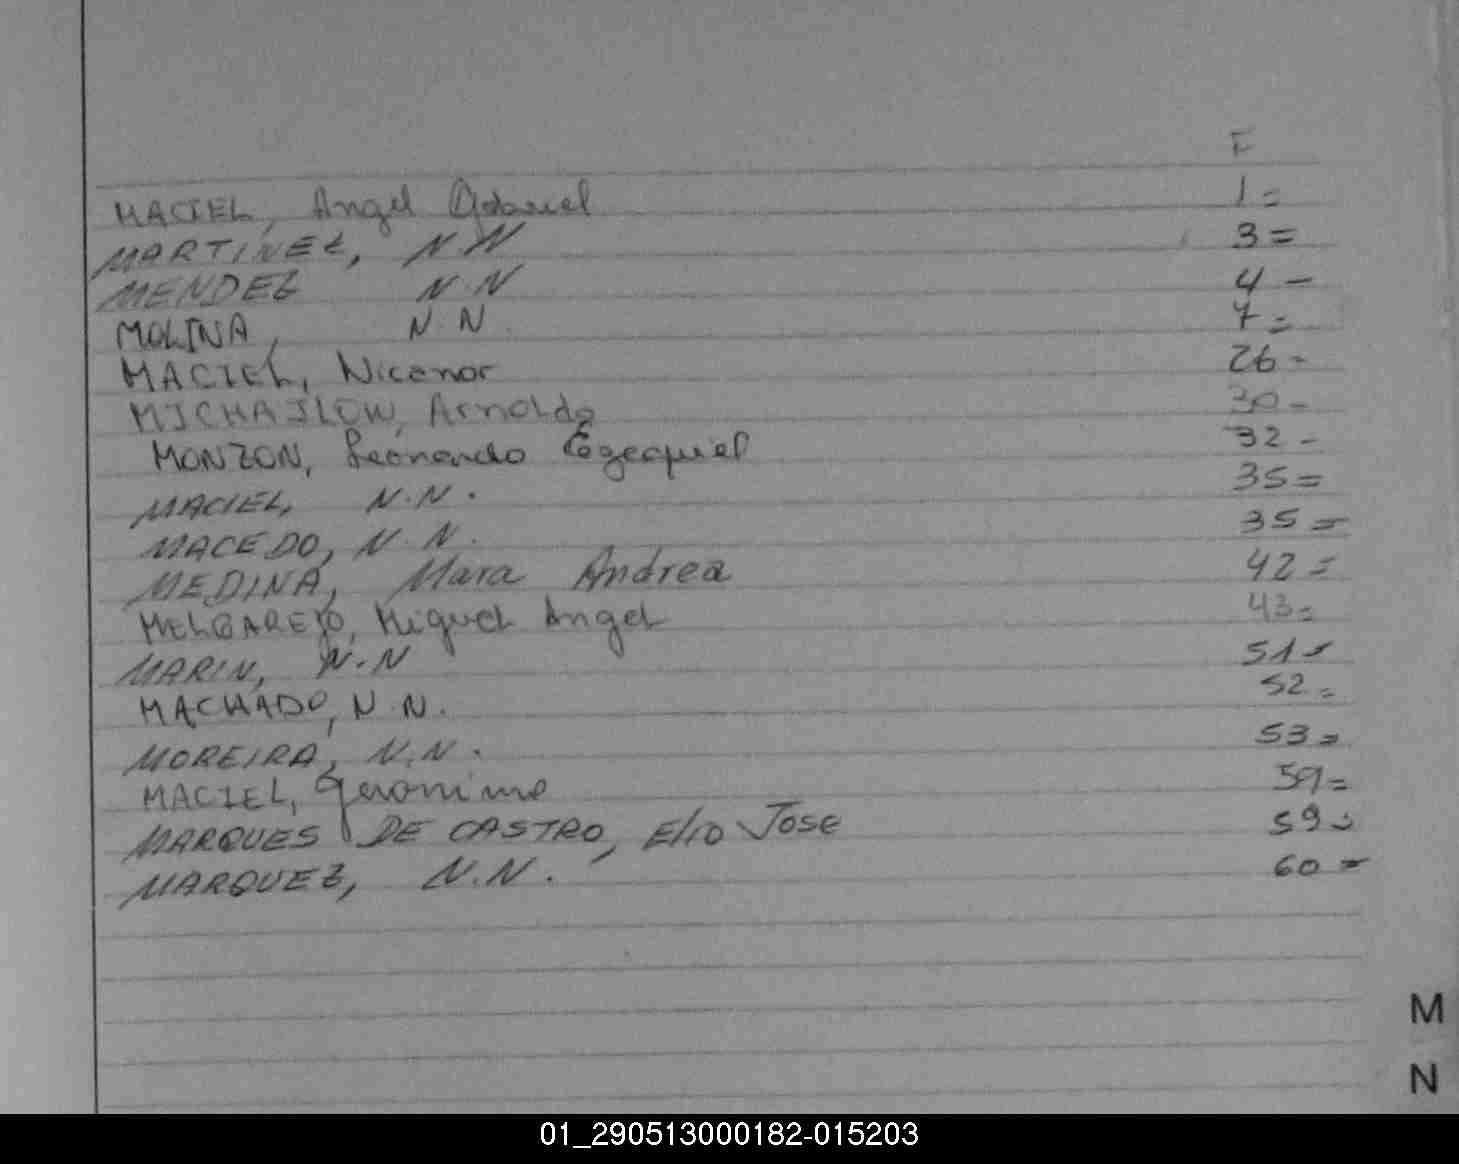 F
MACIEL, Angel Gabriel 1=
MARTINEZ, N N 3=
MENDEZ N N 4-
MOLINA, N.N. 7=
MACIEL, Nicanor 26-
MICHAILOW, Arnoldo 30-
MONZON, Leonardo Ezequiel 32-
MACIEL, N.N. 35=
MACEDO, N.N. 35=
MEDINA, Mara Andrea 42=
MELGAREJO, Miguel Angel 43=
MARIN, N.N 51=
MACHADO, N.N. 52=
MOREIRA, N.N. 53=
MACIEL, Geronimo 59=
MARQUES DE CASTRO, Elio Jose 59=
MARQUEZ, N.N. 60=
M
N
01_290513000182-015203